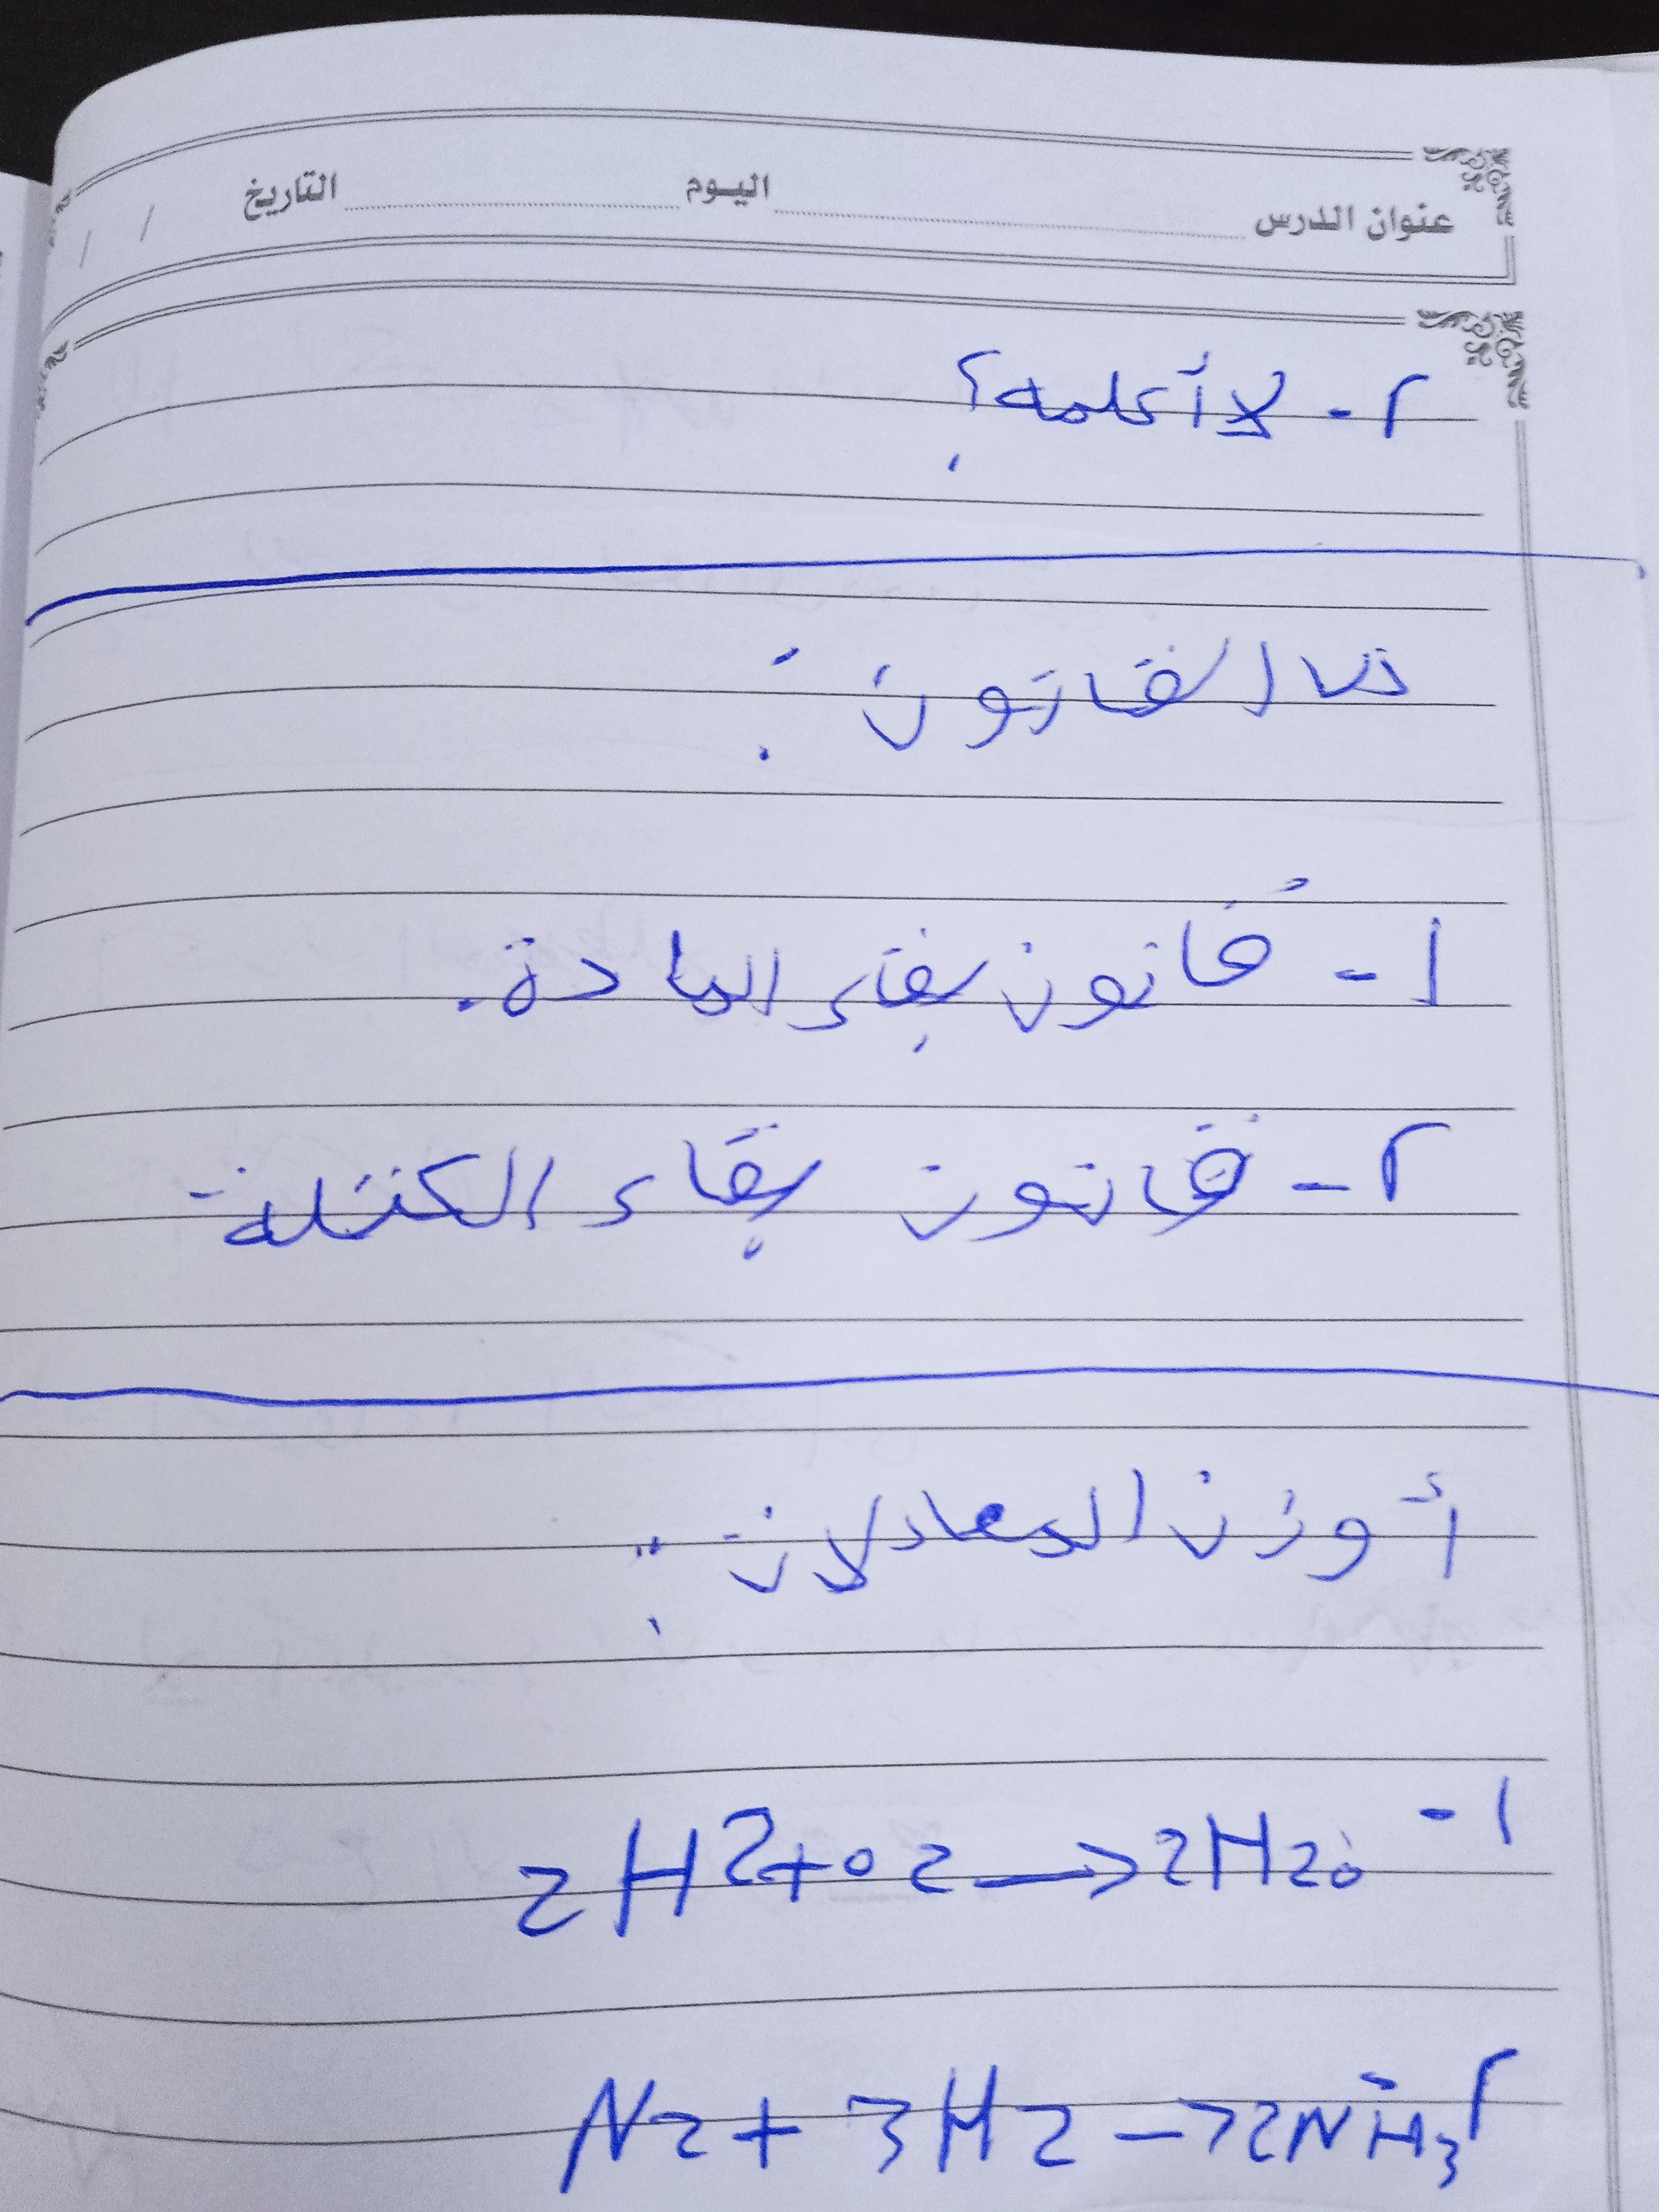 عنوان الدرس اليوم التاريخ / /
٢ - لا أكلمه؟
القانون :
١ - قانون بقاء المادة.
٢ - قانون بقاء الكتلة
أوزن المعادلات :
١ - 2H2+o2→2H2o
٢ - N2+3H2→2NH3